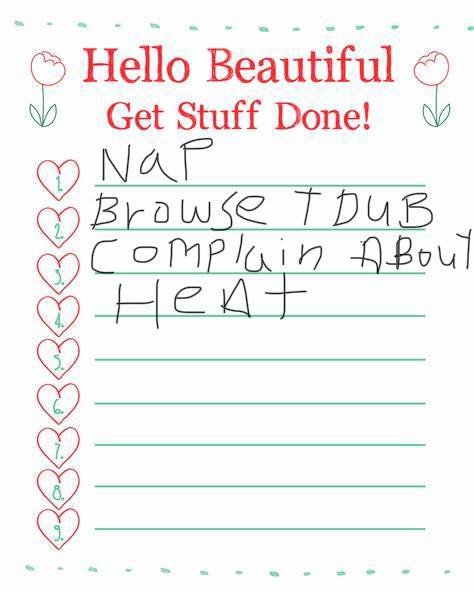 Hello Beautiful
Get Stuff Done!
1. NaP
2. Browse TDUB
3. Complain About
4. HeAt
5.
6.
7.
8.
9.